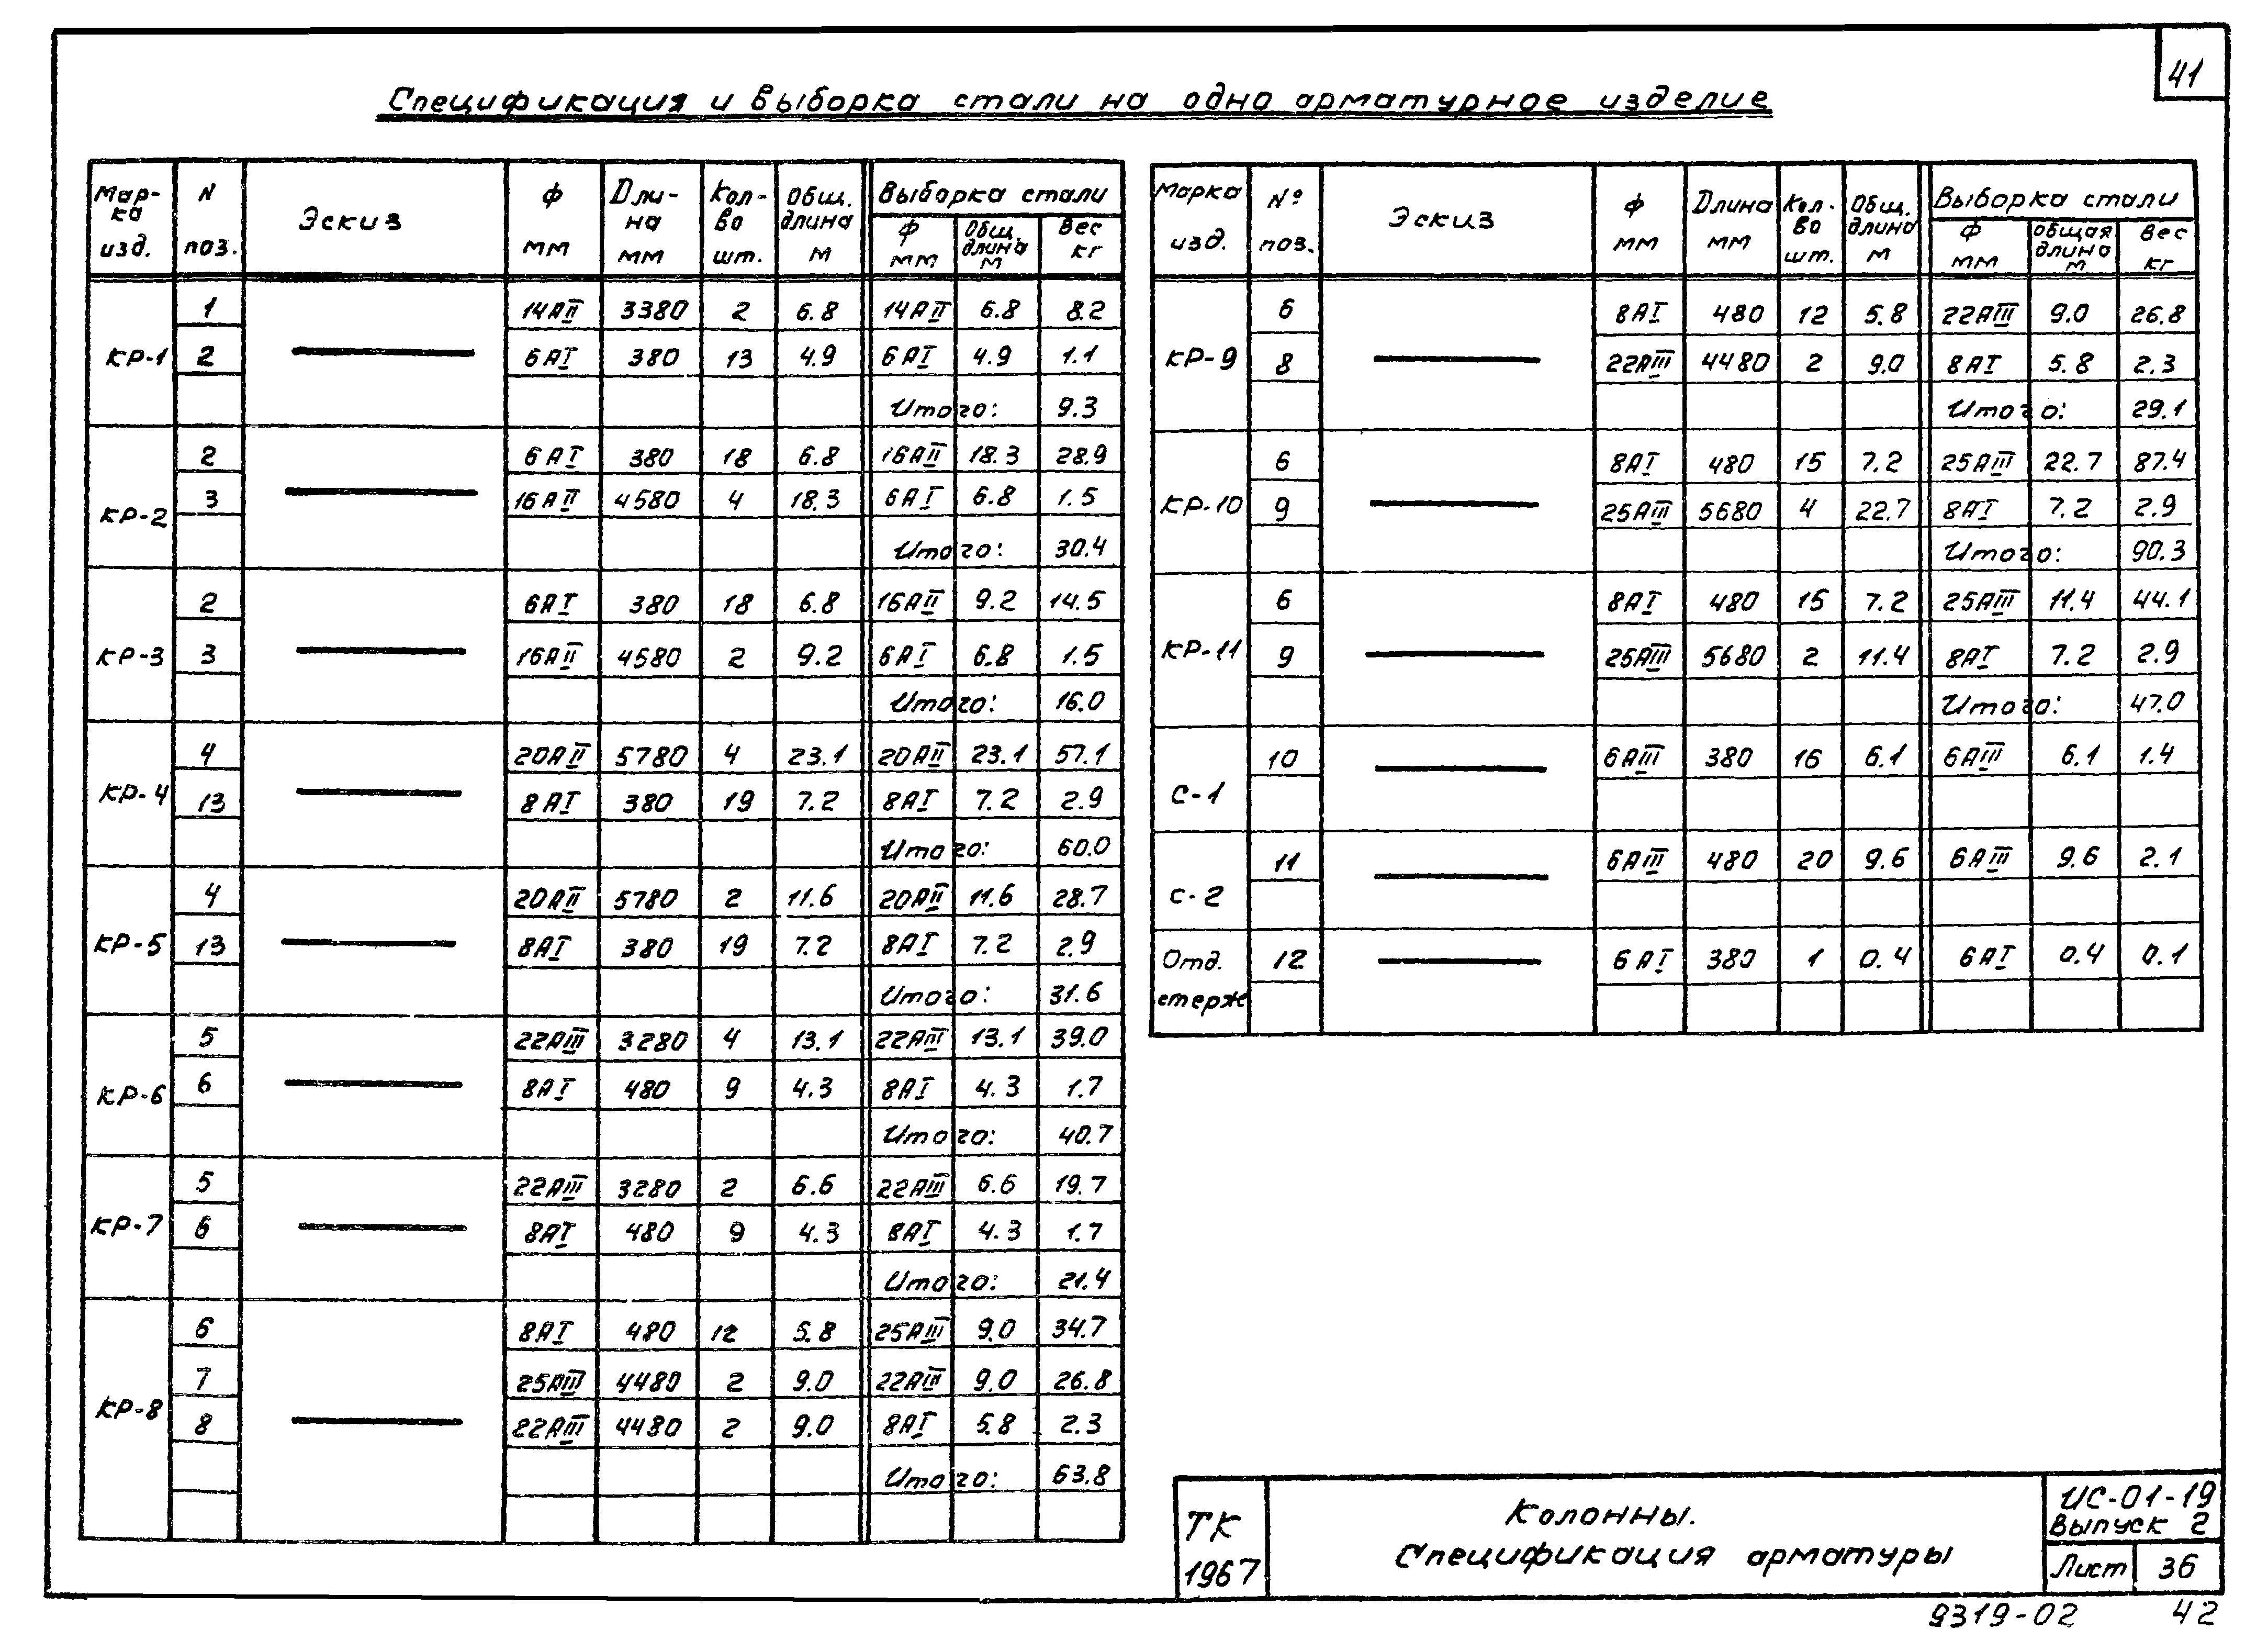 41
Спецификация и выборка стали на одно арматурное изделие
Мар-ка изд. N поз. Эскиз Ф мм Дли-на мм Кол-во шт. Общ. длина м Выборка стали Ф мм Общ. длина м Вес кг
КР-1
1 14АII 3380 2 6.8 14АII 6.8 8.2
2 6АI 380 13 4.9 6АI 4.9 1.1
Итого: 9.3
КР-2
2 6АI 380 18 6.8 16АII 18.3 28.9
3 16АII 4580 4 18.3 6АI 6.8 1.5
Итого: 30.4
КР-3
2 6АI 380 18 6.8 16АII 9.2 14.5
3 16АII 4580 2 9.2 6АI 6.8 1.5
Итого: 16.0
КР-4
4 20АII 5780 4 23.1 20АII 23.1 57.1
13 8АI 380 19 7.2 8АI 7.2 2.9
Итого: 60.0
КР-5
4 20АII 5780 2 11.6 20АII 11.6 28.7
13 8АI 380 19 7.2 8АI 7.2 2.9
Итого: 31.6
КР-6
5 22АIII 3280 4 13.1 22АIII 13.1 39.0
6 8АI 480 9 4.3 8АI 4.3 1.7
Итого: 40.7
КР-7
5 22АIII 3280 2 6.6 22АIII 6.6 19.7
6 8АI 480 9 4.3 8АI 4.3 1.7
Итого: 21.4
КР-8
6 8АI 480 12 5.8 25АIII 9.0 34.7
7 25АIII 4480 2 9.0 22АIII 9.0 26.8
8 22АIII 4480 2 9.0 8АI 5.8 2.3
Итого: 63.8
Марка изд. № поз. Эскиз Ф мм Длина мм Кол-во шт. Общ. длина м Выборка стали Ф мм Общая длина м Вес кг
КР-9
6 8АI 480 12 5.8 22АIII 9.0 26.8
8 22АIII 4480 2 9.0 8АI 5.8 2.3
Итого: 29.1
КР-10
6 8АI 480 15 7.2 25АIII 22.7 87.4
9 25АIII 5680 4 22.7 8АI 7.2 2.9
Итого: 90.3
КР-11
6 8АI 480 15 7.2 25АIII 11.4 44.1
9 25АIII 5680 2 11.4 8АI 7.2 2.9
Итого: 47.0
С-1
10 6АIII 380 16 6.1 6АIII 6.1 1.4
С-2
11 6АIII 480 20 9.6 6АIII 9.6 2.1
Отд. стерж
12 6АI 380 1 0.4 6АI 0.4 0.1
ТК
1967
Колонны.
Спецификация арматуры
ИС-01-19
Выпуск 2
Лист 36
9319-02 42